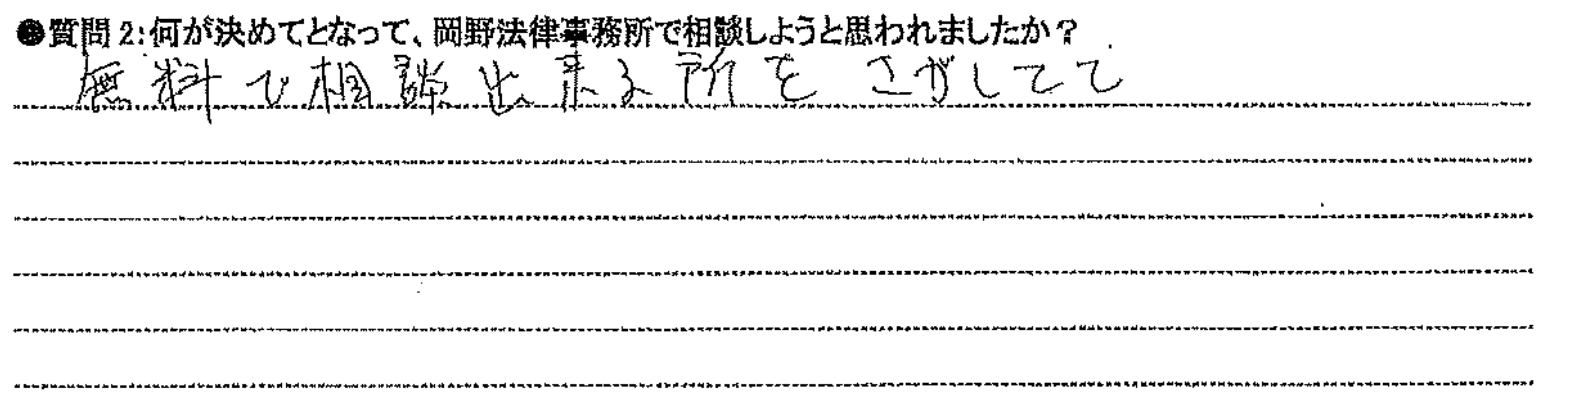 ●質問2:何が決めてとなって、岡野法律事務所で相談しようと思われましたか?
無料で相談出来る所をさがしてて